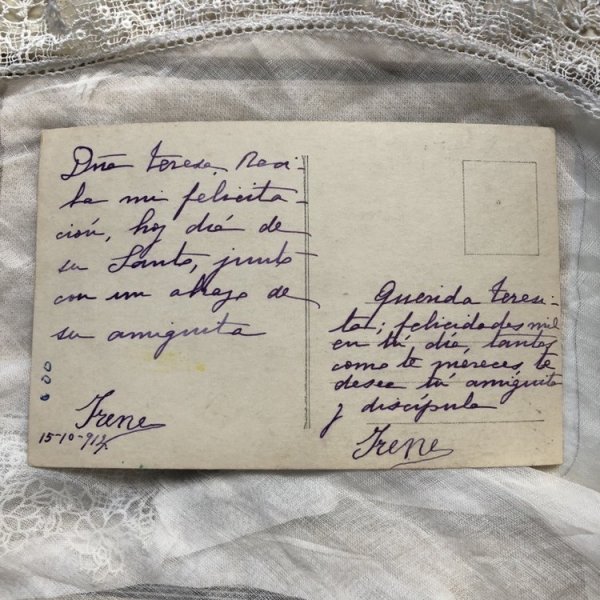 Dña Teresa, Reci-
ba mi felicita-
ción, hoy día de
su Santo, junto
con un abrazo de
su amiguita
Irene
15-10-917
600
Querida Teresi-
ta; felicidades mil
en tú día, tantas
como te mereces, te
desea tú amiguita
y discípula
Irene